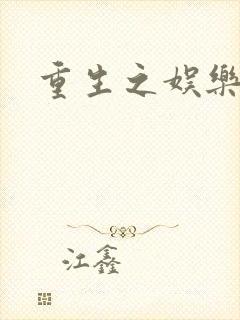 重生之娱樂
江鑫